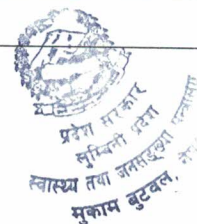 प्रदेश सरकार
लुम्बिनी प्रदेश
स्वास्थ्य तथा जनसङ्ख्या मन्त्रालय
मुकाम बुटवल,